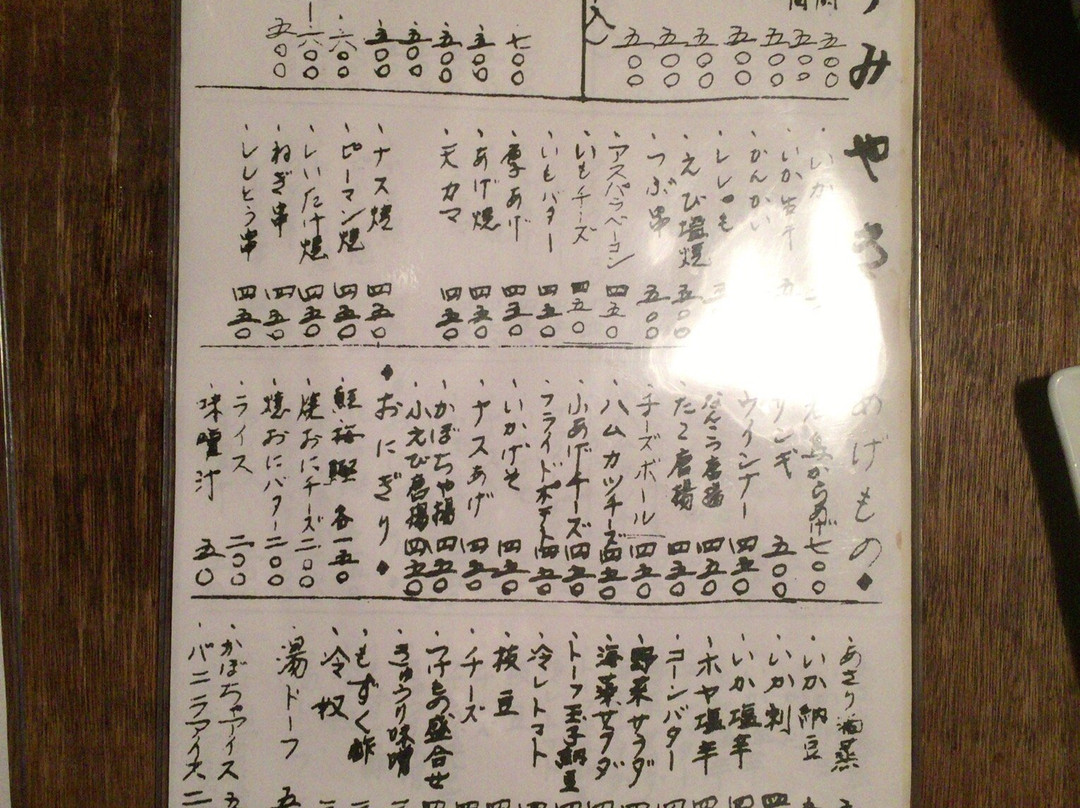 七〇〇
五〇〇
五〇〇
五〇〇
五〇〇
六〇〇
六〇〇
五〇〇
みやき
いか
いか生干
かんかい
ししゃも
えび塩焼
つぶ串 五〇〇
アスパラベーコン 四五〇
いもチーズ 四五〇
いもバター 四五〇
厚あげ 四五〇
あげ焼 四五〇
天カマ 四五〇
ナス焼 四五〇
ピーマン焼 四五〇
しいたけ焼 四五〇
ねぎ串 四五〇
ししとう串 四五〇
あげもの
七〇〇
五〇〇
ウインナー 四五〇
なんこつ唐揚 四五〇
たこ唐揚 四五〇
チーズボール 四五〇
ハムカツチーズ 四五〇
ふあげチーズ 四五〇
フライドポテト 四五〇
いかげそ 四五〇
ナスあげ 四五〇
かぼちゃ揚 四五〇
小えび唐揚 四五〇
おにぎり
鮭 梅 鰹 各一五〇
焼おにチーズ 二〇〇
焼おにバター 二〇〇
ライス 二〇〇
味噌汁 五〇
あさり酒蒸
いか納豆
いか刺
いか塩辛
ホヤ塩辛
コーンバター
野菜サラダ
海藻サラダ
トーフ玉子納豆
冷しトマト
枝豆
チーズ
つけもの盛合せ
きゅうり味噌
もずく酢
冷奴
湯ドーフ
かぼちゃアイス
バニラアイス